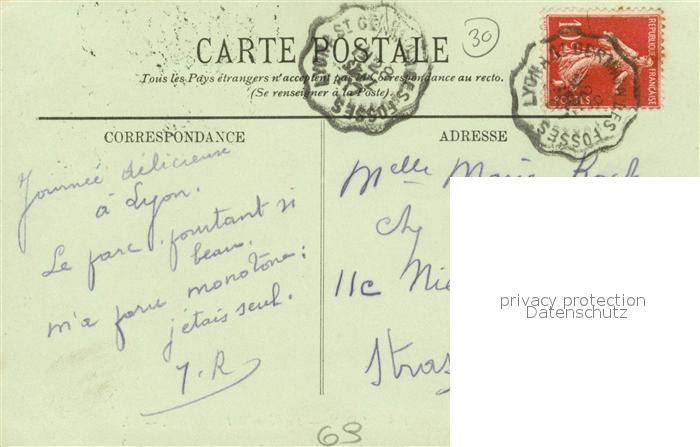 CARTE POSTALE
30
Tous les Pays étrangers n'acceptent pas la Correspondance au recto.
(Se renseigner à la Poste).
REPUBLIQUE FRANÇAISE
10
POSTES
LYON A ST GERMAIN LES FOSSES
CORRESPONDANCE
Journée délicieuse
à Lyon.
Le parc pourtant si
beau,
m'a paru monotone:
j'étais seul.
J.R
ADRESSE
Melle Marie
11c
Stras
privacy protection
Datenschutz
69